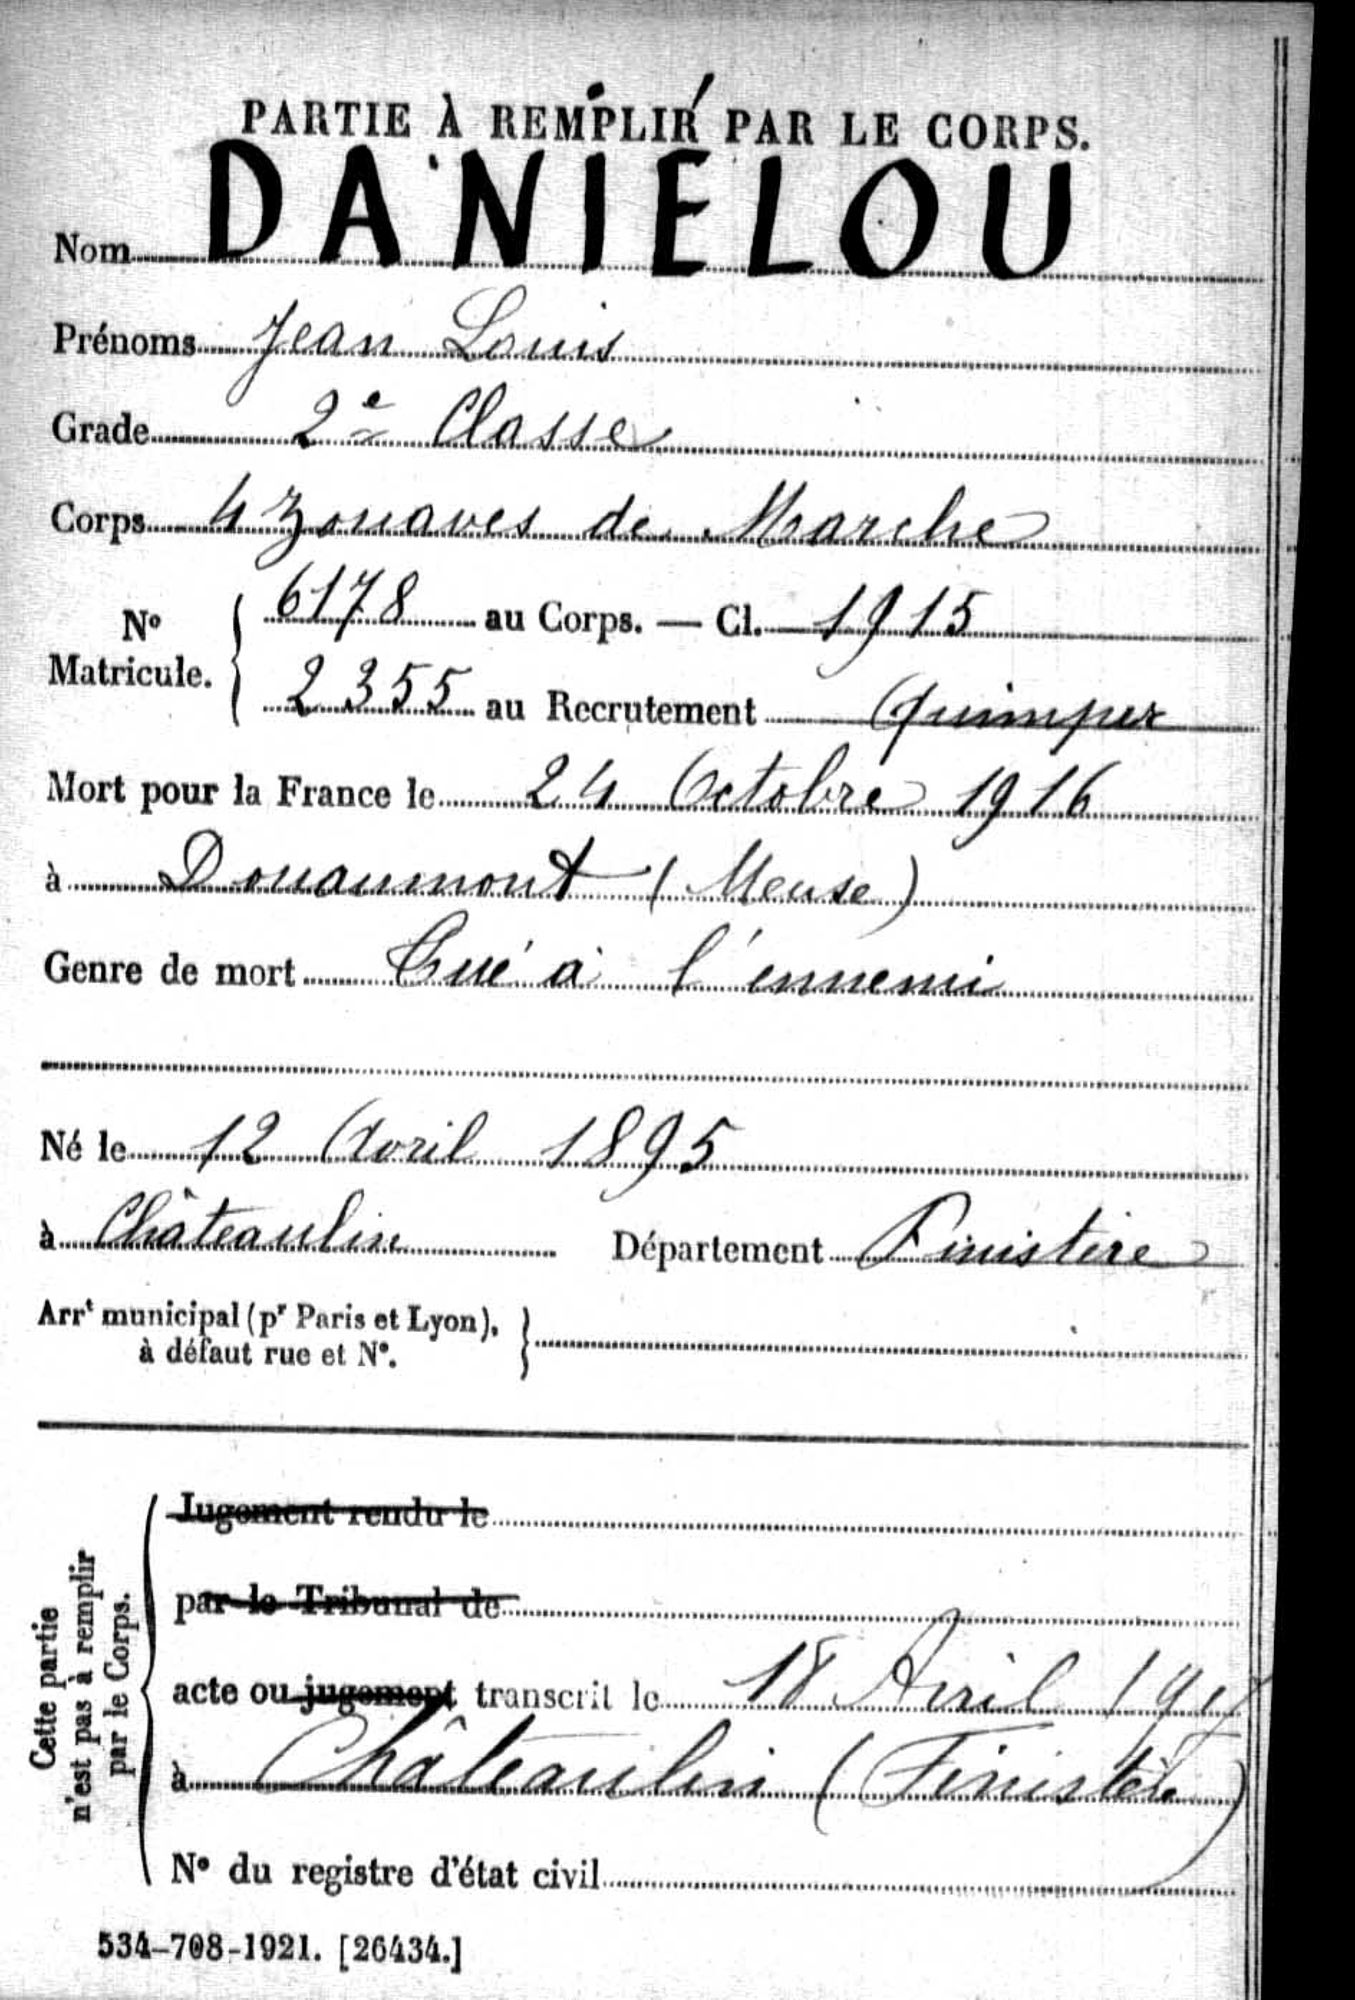 PARTIE À REMPLIR PAR LE CORPS.
Nom DANIÉLOU
Prénoms Jean Louis
Grade 2e Classe
Corps 4 Zouaves de Marche
No Matricule. 6178 au Corps. — Cl. 1915
2355 au Recrutement Quimper
Mort pour la France le 24 Octobre 1916
à Douaumont (Meuse)
Genre de mort Tué à l'ennemi
Né le 12 Avril 1895
à Châteaulin Département Finistère
Arrt municipal (pr Paris et Lyon),
à défaut rue et No.
Cette partie
n'est pas à remplir
par le Corps.
Jugement rendu le
par le Tribunal de
acte ou jugement transcrit le 18 Avril 1917
à Châteaulin (Finistère)
No du registre d'état civil
534-708-1921. [26434.]